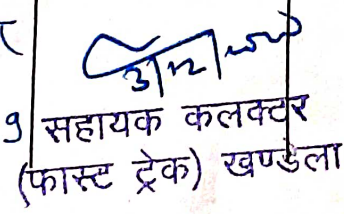 9 सहायक कलक्टर
(फास्ट ट्रेक) खण्डेला